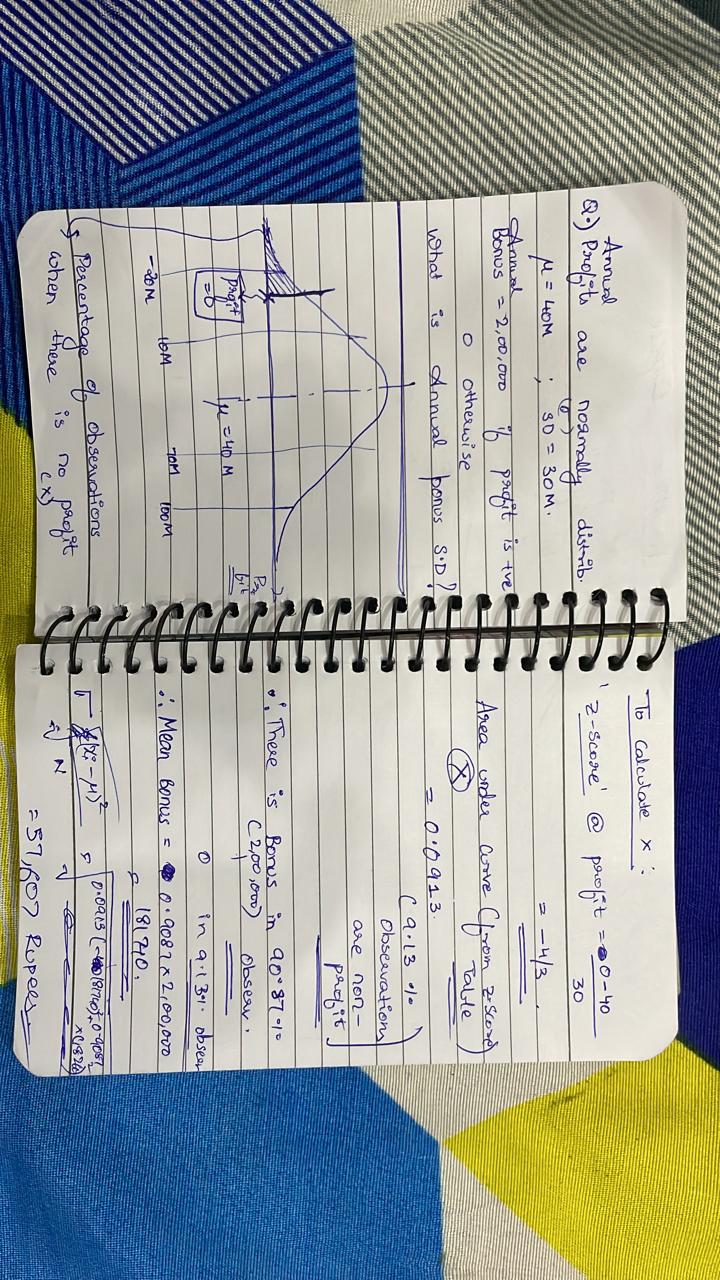 Annual
Q.) Profits are normally distrib.
(σ)
μ = 40M ; SD = 30M.
Annual
Bonus = 2,00,000 if profit is +ve
0 otherwise
What is Annual bonus S.D?
Profit
profit
= 0
μ = 40 M
-20M
10M
70M
100M
Percentage of observations
when there is no profit
To Calculate x :
'Z-score' @ profit = 0-40
30
= -4/3.
Area under curve (from z-score
Table)
X
= 0.0913.
(9.13 %
Observations
are non-
profit)
∴ There is Bonus in 90.87%
(2,00,000) observ.
0 in 9.13% obser
∴ Mean Bonus = 0.9087 x 2,00,000
= 181740.
(xi - μ)²
N
= 57,607 Rupees